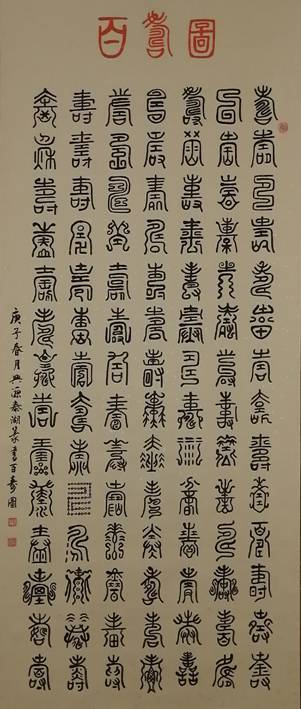 百壽圖
壽壽壽壽壽壽壽壽壽壽壽壽壽壽
壽壽壽壽壽壽壽壽壽壽壽壽壽壽
壽壽壽壽壽壽壽壽壽壽壽壽壽壽
壽壽壽壽壽壽壽壽壽壽壽壽壽壽
壽壽壽壽壽壽壽壽壽壽壽壽壽壽
壽壽壽壽壽壽壽壽壽壽壽壽壽壽
壽壽壽壽壽壽壽壽壽壽壽壽壽壽
庚子春月源湖篆書百壽圖